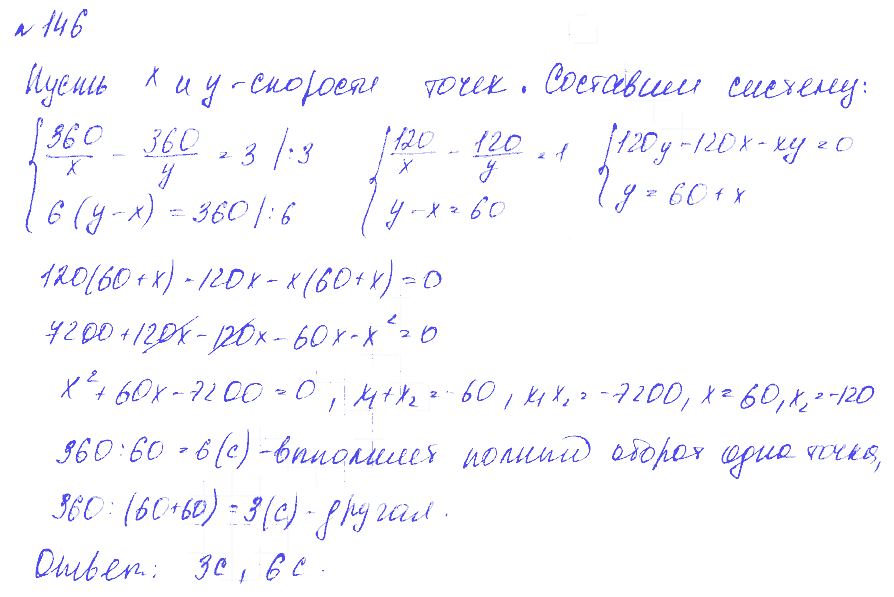 № 146
Пусть x и y - скорости точек. Составим систему:
{ 360/x - 360/y = 3 |:3   { 120/x - 120/y = 1   { 120y - 120x - xy = 0
6(y-x) = 360 |:6   y - x = 60   y = 60 + x
120(60+x) - 120x - x(60+x) = 0
7200 + 120x - 120x - 60x - x² = 0
x² + 60x - 7200 = 0, x₁+x₂ = -60, x₁x₂ = -7200, x = 60, x₂ = -120
360:60 = 6(с) - выполняет полный оборот одна точка,
360:(60+60) = 3(с) - другая.
Ответ: 3с, 6с.